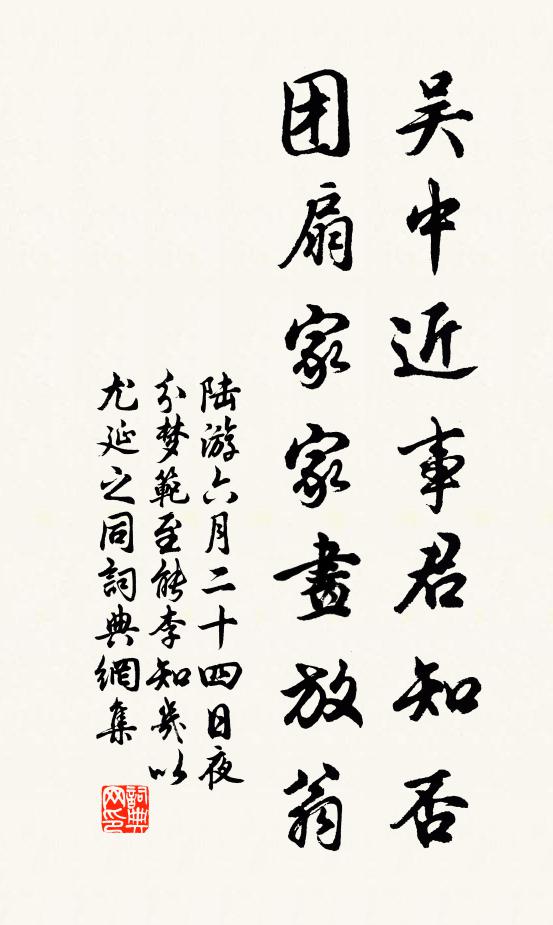 吴中近事君知否
团扇家家畫放翁
陆游六月二十四日夜
分梦範至能李知幾以
尤延之同詞典網集
詞典网印